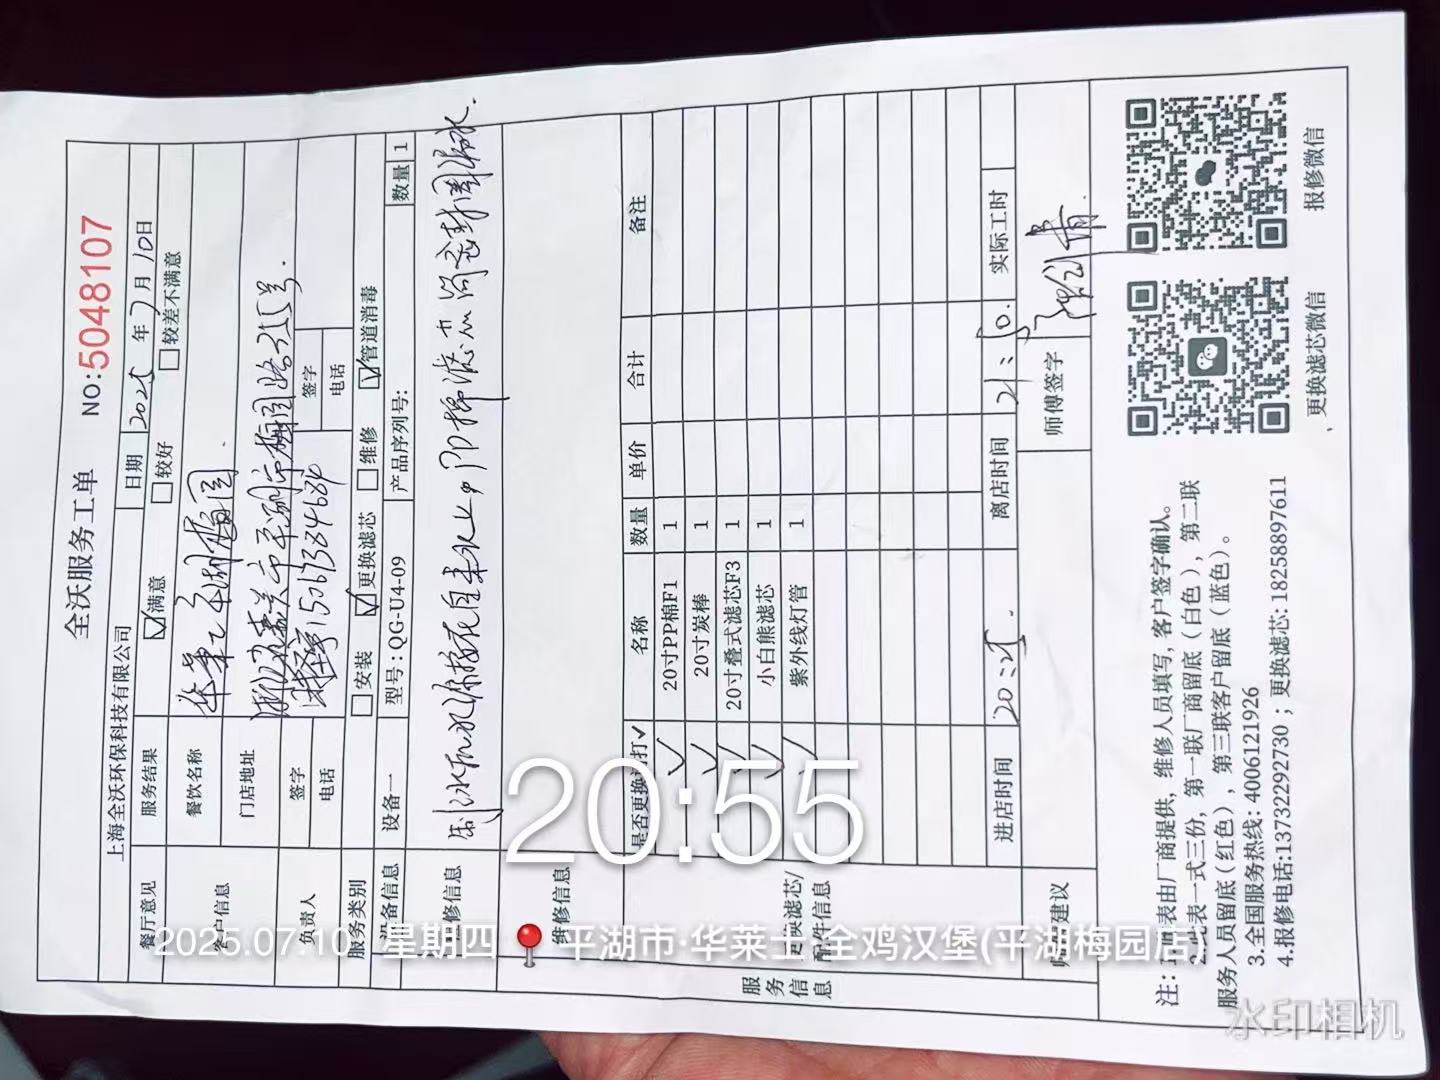 全沃服务工单 NO:5048107
上海全沃环保科技有限公司 日期 2025 年 7 月 10 日
餐厅意见 服务结果 ☑满意 ☐较好 ☐较差不满意
客户信息 餐饮名称 华莱士平湖梅园.
门店地址 浙江省嘉兴市平湖市梅园路325号.
负责人 签字 签字
电话 15067384684 电话
服务类别 ☐安装 ☑更换滤芯 ☐维修 ☑管道消毒
设备信息 设备一 型号:QG-U4-09 产品序列号: 数量 1
报修信息 制冰机水源接在自来水上,
维修信息
服务信息 更换滤芯/配件信息
是否更换请打✓ 名称 数量 单价 合计 备注
✓ 20寸PP棉F1 1
✓ 20寸炭棒 1
✓ 20寸叠式滤芯F3 1
✓ 小白熊滤芯 1
✓ 紫外线灯管 1
进店时间 20:25. 离店时间 21:50. 实际工时
师傅建议 师傅签字
更换滤芯微信 报修微信
注:1.此表由厂商提供,维修人员填写,客户签字确认。
2.此表一式三份,第一联厂商留底(白色),第二联
服务人员留底(红色),第三联客户留底(蓝色)。
3.全国服务热线:4006121926
4.报修电话:13732292730;更换滤芯:18258897611
20:55
2025.07.10 星期四 平湖市·华莱士·全鸡汉堡(平湖梅园店)
水印相机